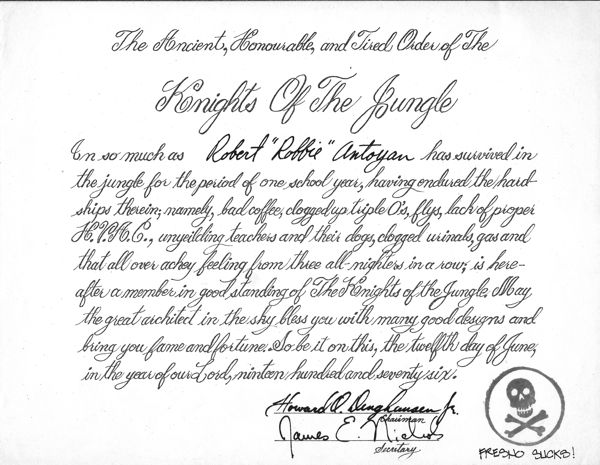 The Ancient, Honourable, and Tired Order of The
Knights Of The Jungle
In so much as Robert "Robbie" Antoyan has survived in
the jungle for the period of one school year, having endured the hard-
ships therein; namely, bad coffee, clogged up triple O's, flys, lack of proper
H.V.A.C., unyeilding teachers and their dogs, clogged urinals, gas and
that all over achey feeling from three all-nighters in a row; is here-
after a member in good standing of The Knights of the Jungle. May
the great architect in the sky bless you with many good designs and
bring you fame and fortune. So be it on this, the twelfth day of June,
in the year of our Lord, ninteen hundred and seventy six.
Howard O. Danghausen Jr.
Chairman
James E. Nichols
Secretary
FRESNO SUCKS!